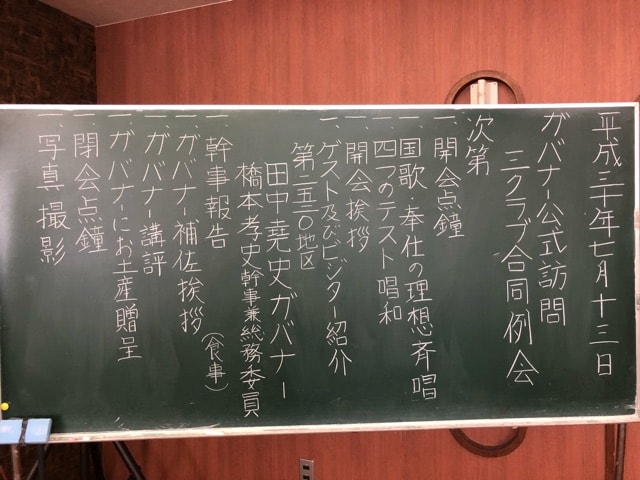 平成三十年七月十三日
ガバナー公式訪問
三クラブ合同例会
次第
一、開会点鐘
一、国歌・奉仕の理想斉唱
一、四つのテスト唱和
一、開会挨拶
一、ゲスト及びビジター紹介
第二五二〇地区
田中堯史ガバナー
橋本孝史幹事兼総務委員
一、幹事報告
(食事)
一、ガバナー補佐挨拶
一、ガバナー講評
一、ガバナーにお土産贈呈
一、閉会点鐘
一、写真撮影